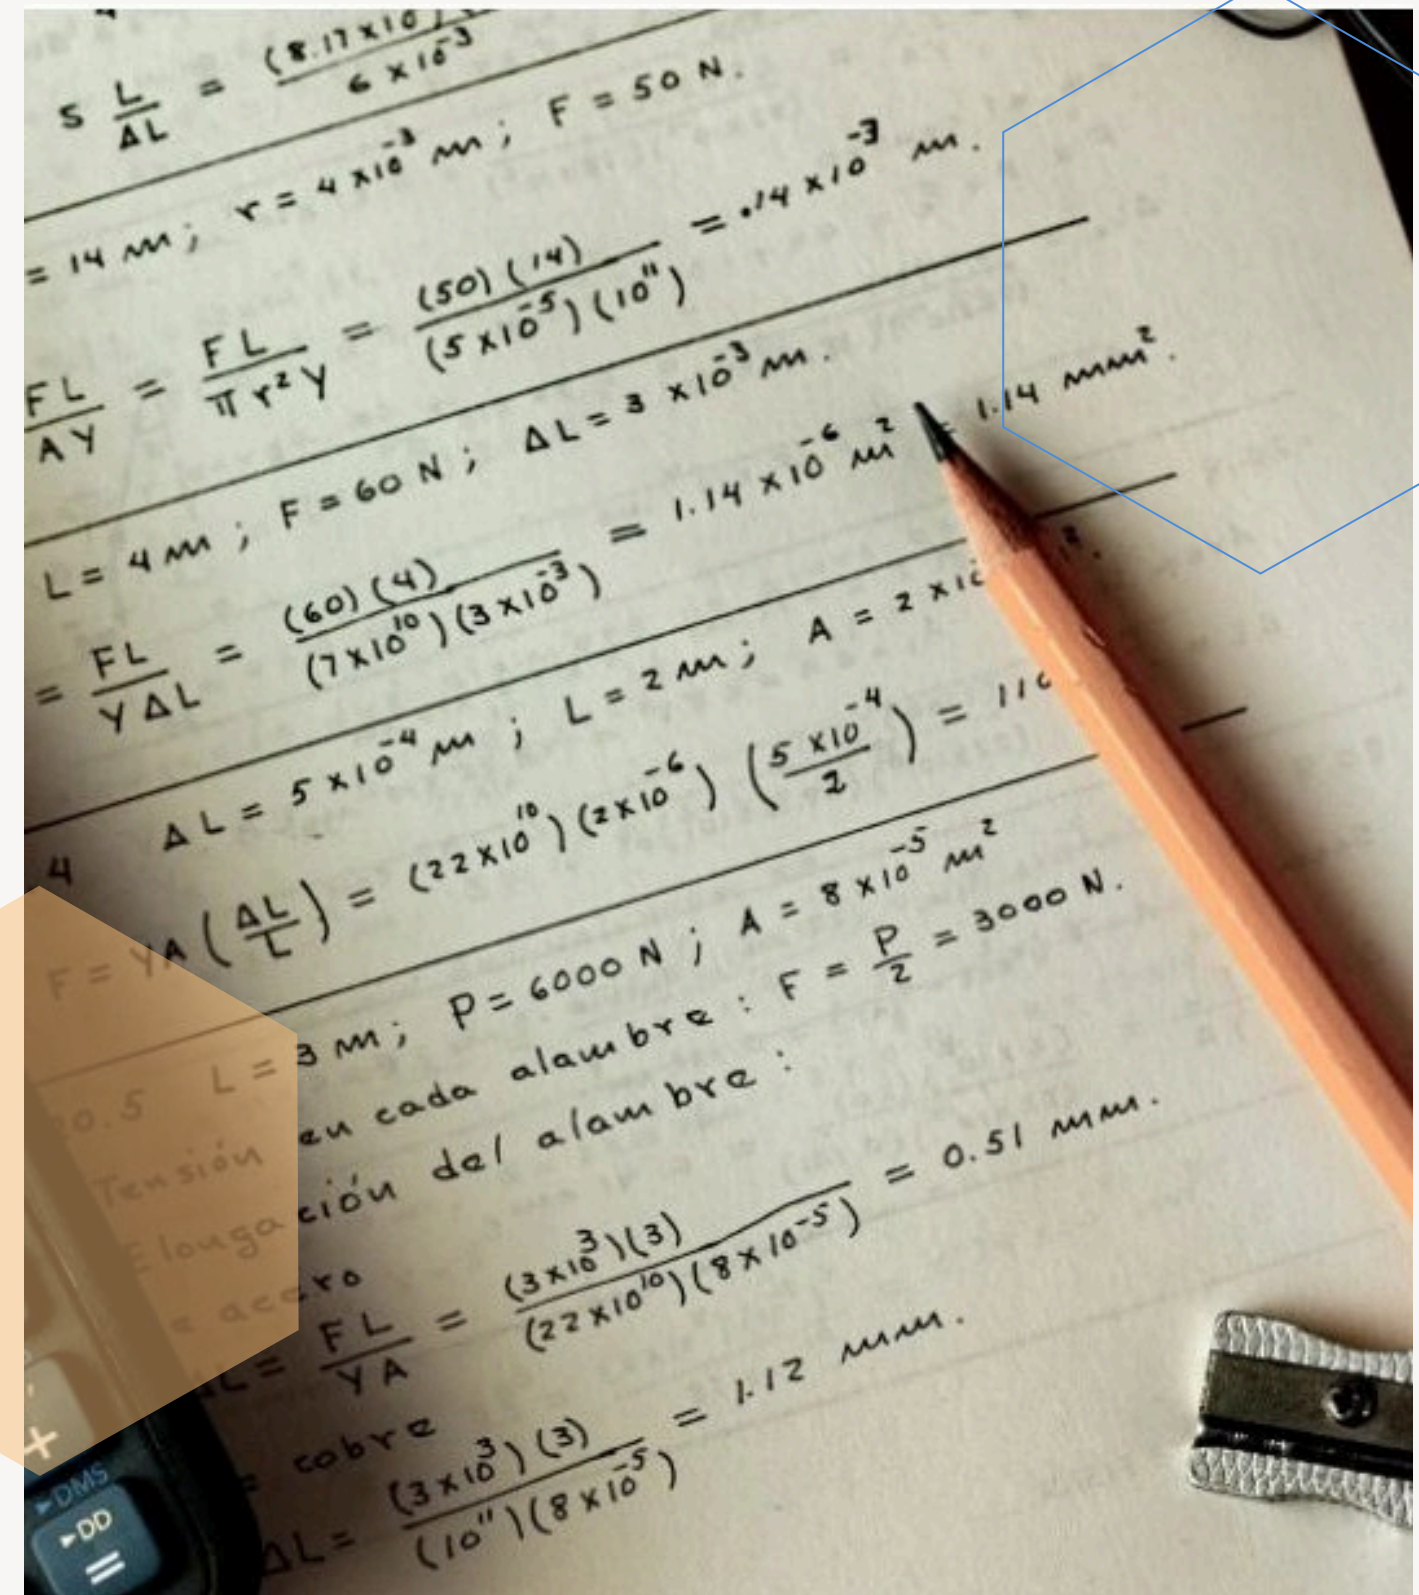 5 L/ΔL = (8.17×10 / 6×10⁻³
= 14 m; r = 4×10⁻³ m; F = 50 N.
FL/AY = FL/πr²Y = (50)(14)/(5×10⁻⁵)(10¹¹) = .14×10⁻³ m.
L = 4 m; F = 60 N; ΔL = 3×10⁻³ m.
= FL/YΔL = (60)(4)/(7×10¹⁰)(3×10⁻³) = 1.14×10⁻⁶ m² = 1.14 mm².
4 ΔL = 5×10⁻⁴ m; L = 2 m; A = 2×10
F = YA(ΔL/L) = (22×10¹⁰)(2×10⁻⁶)(5×10⁻⁴/2) = 11
20.5 L = 3 m; P = 6000 N; A = 8×10⁻⁵ m²
Tensión en cada alambre: F = P/2 = 3000 N.
Elongación del alambre:
e acero
ΔL = FL/YA = (3×10³)(3)/(22×10¹⁰)(8×10⁻⁵) = 0.51 mm.
cobre
ΔL = (3×10³)(3)/(10¹¹)(8×10⁻⁵) = 1.12 mm.
+
►DMS
►DD
=